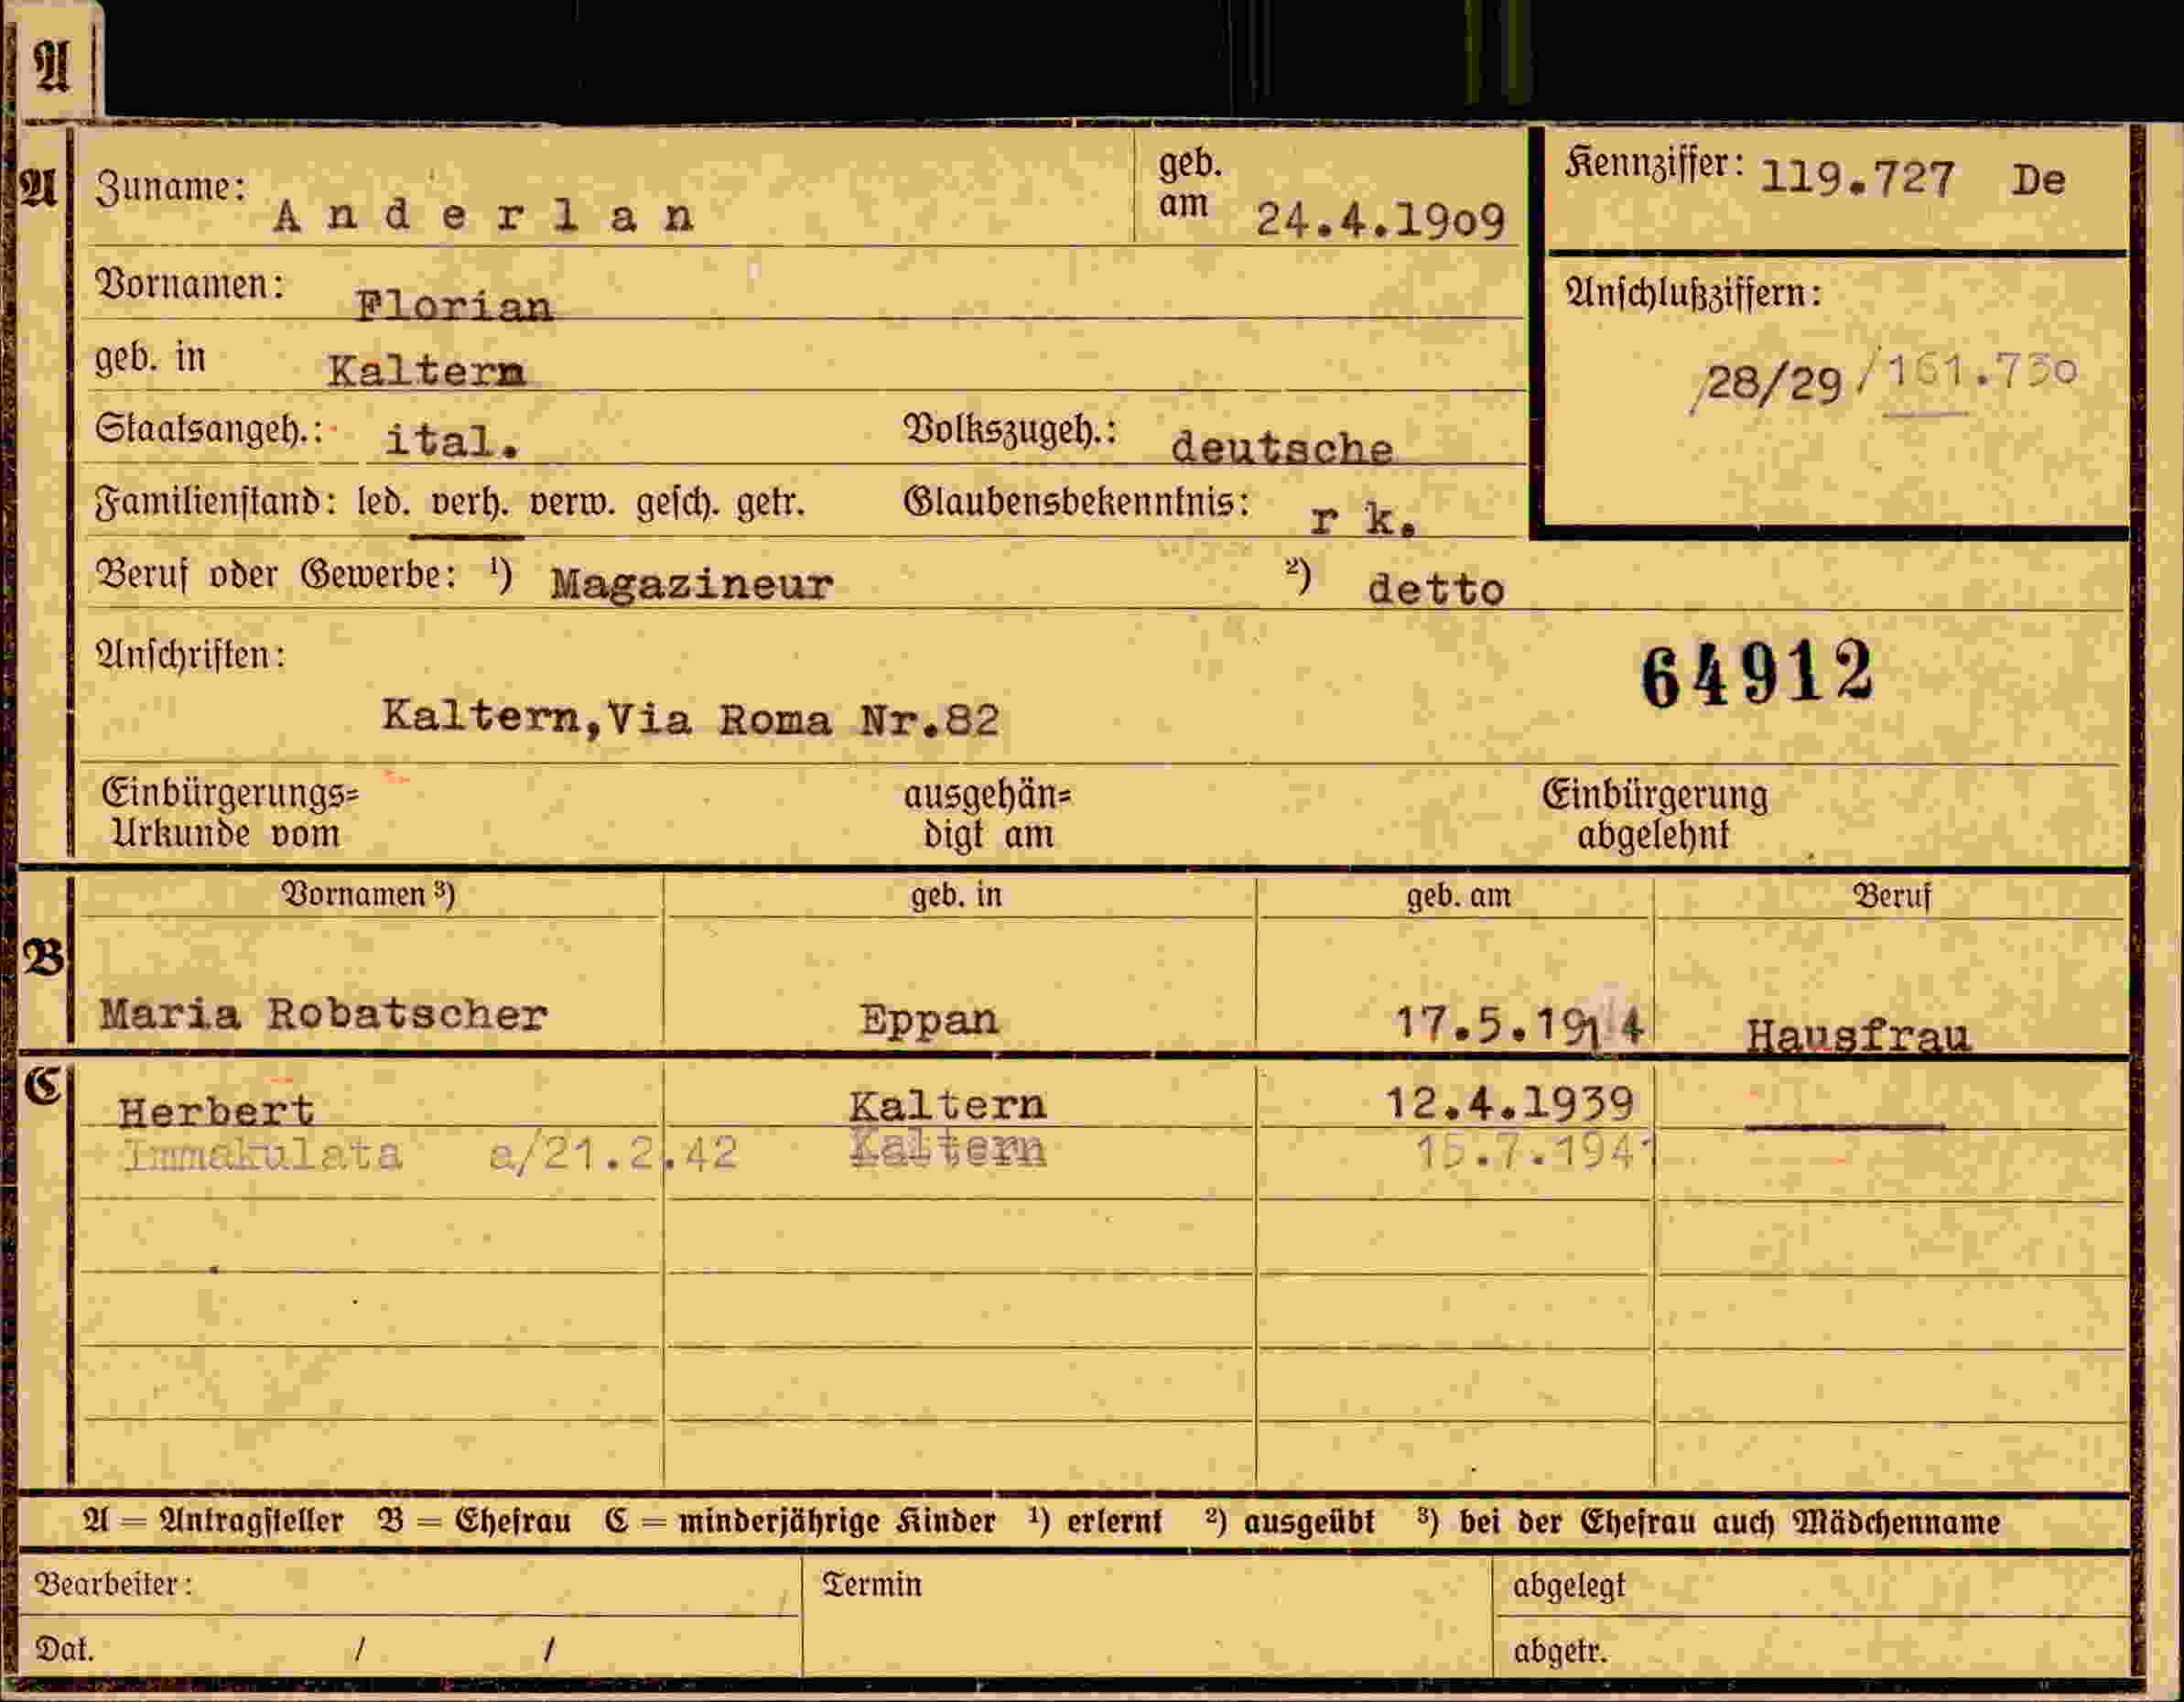 A
A Zuname: Anderlan geb. am 24.4.1909 Kennziffer: 119.727 De
Vornamen: Florian Anschlußziffern:
geb. in Kaltern /28/29/161.730
Staatsangeh.: ital. Volkszugeh.: deutsche
Familienstand: led. verh. verw. gesch. getr. Glaubensbekenntnis: r k.
Beruf oder Gewerbe: ¹) Magazineur ²) detto
Anschriften: 64912
Kaltern,Via Roma Nr.82
Einbürgerungs= ausgehän= Einbürgerung
Urkunde vom digt am abgelehnt
Vornamen ³) geb. in geb. am Beruf
B
Maria Robatscher Eppan 17.5.1914 Hausfrau
C Herbert Kaltern 12.4.1939
Immakulata a/21.2.42 Kaltern 15.7.1941
A = Antragsteller B = Ehefrau C = minderjährige Kinder ¹) erlernt ²) ausgeübt ³) bei der Ehefrau auch Mädchenname
Bearbeiter: Termin abgelegt
Dat. / / abgetr.